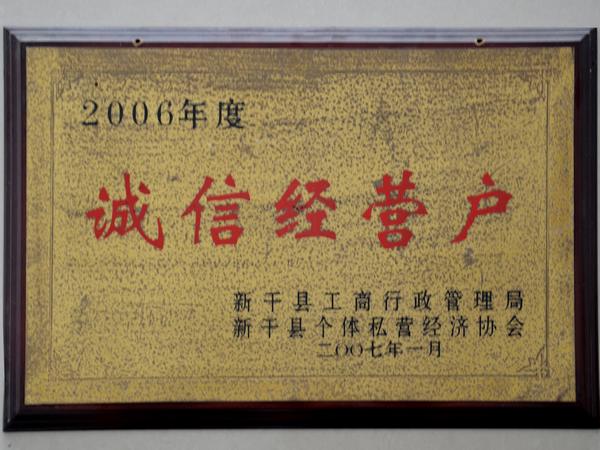 2006年度
诚信经营户
新干县工商行政管理局
新干县个体私营经济协会
二〇〇七年一月